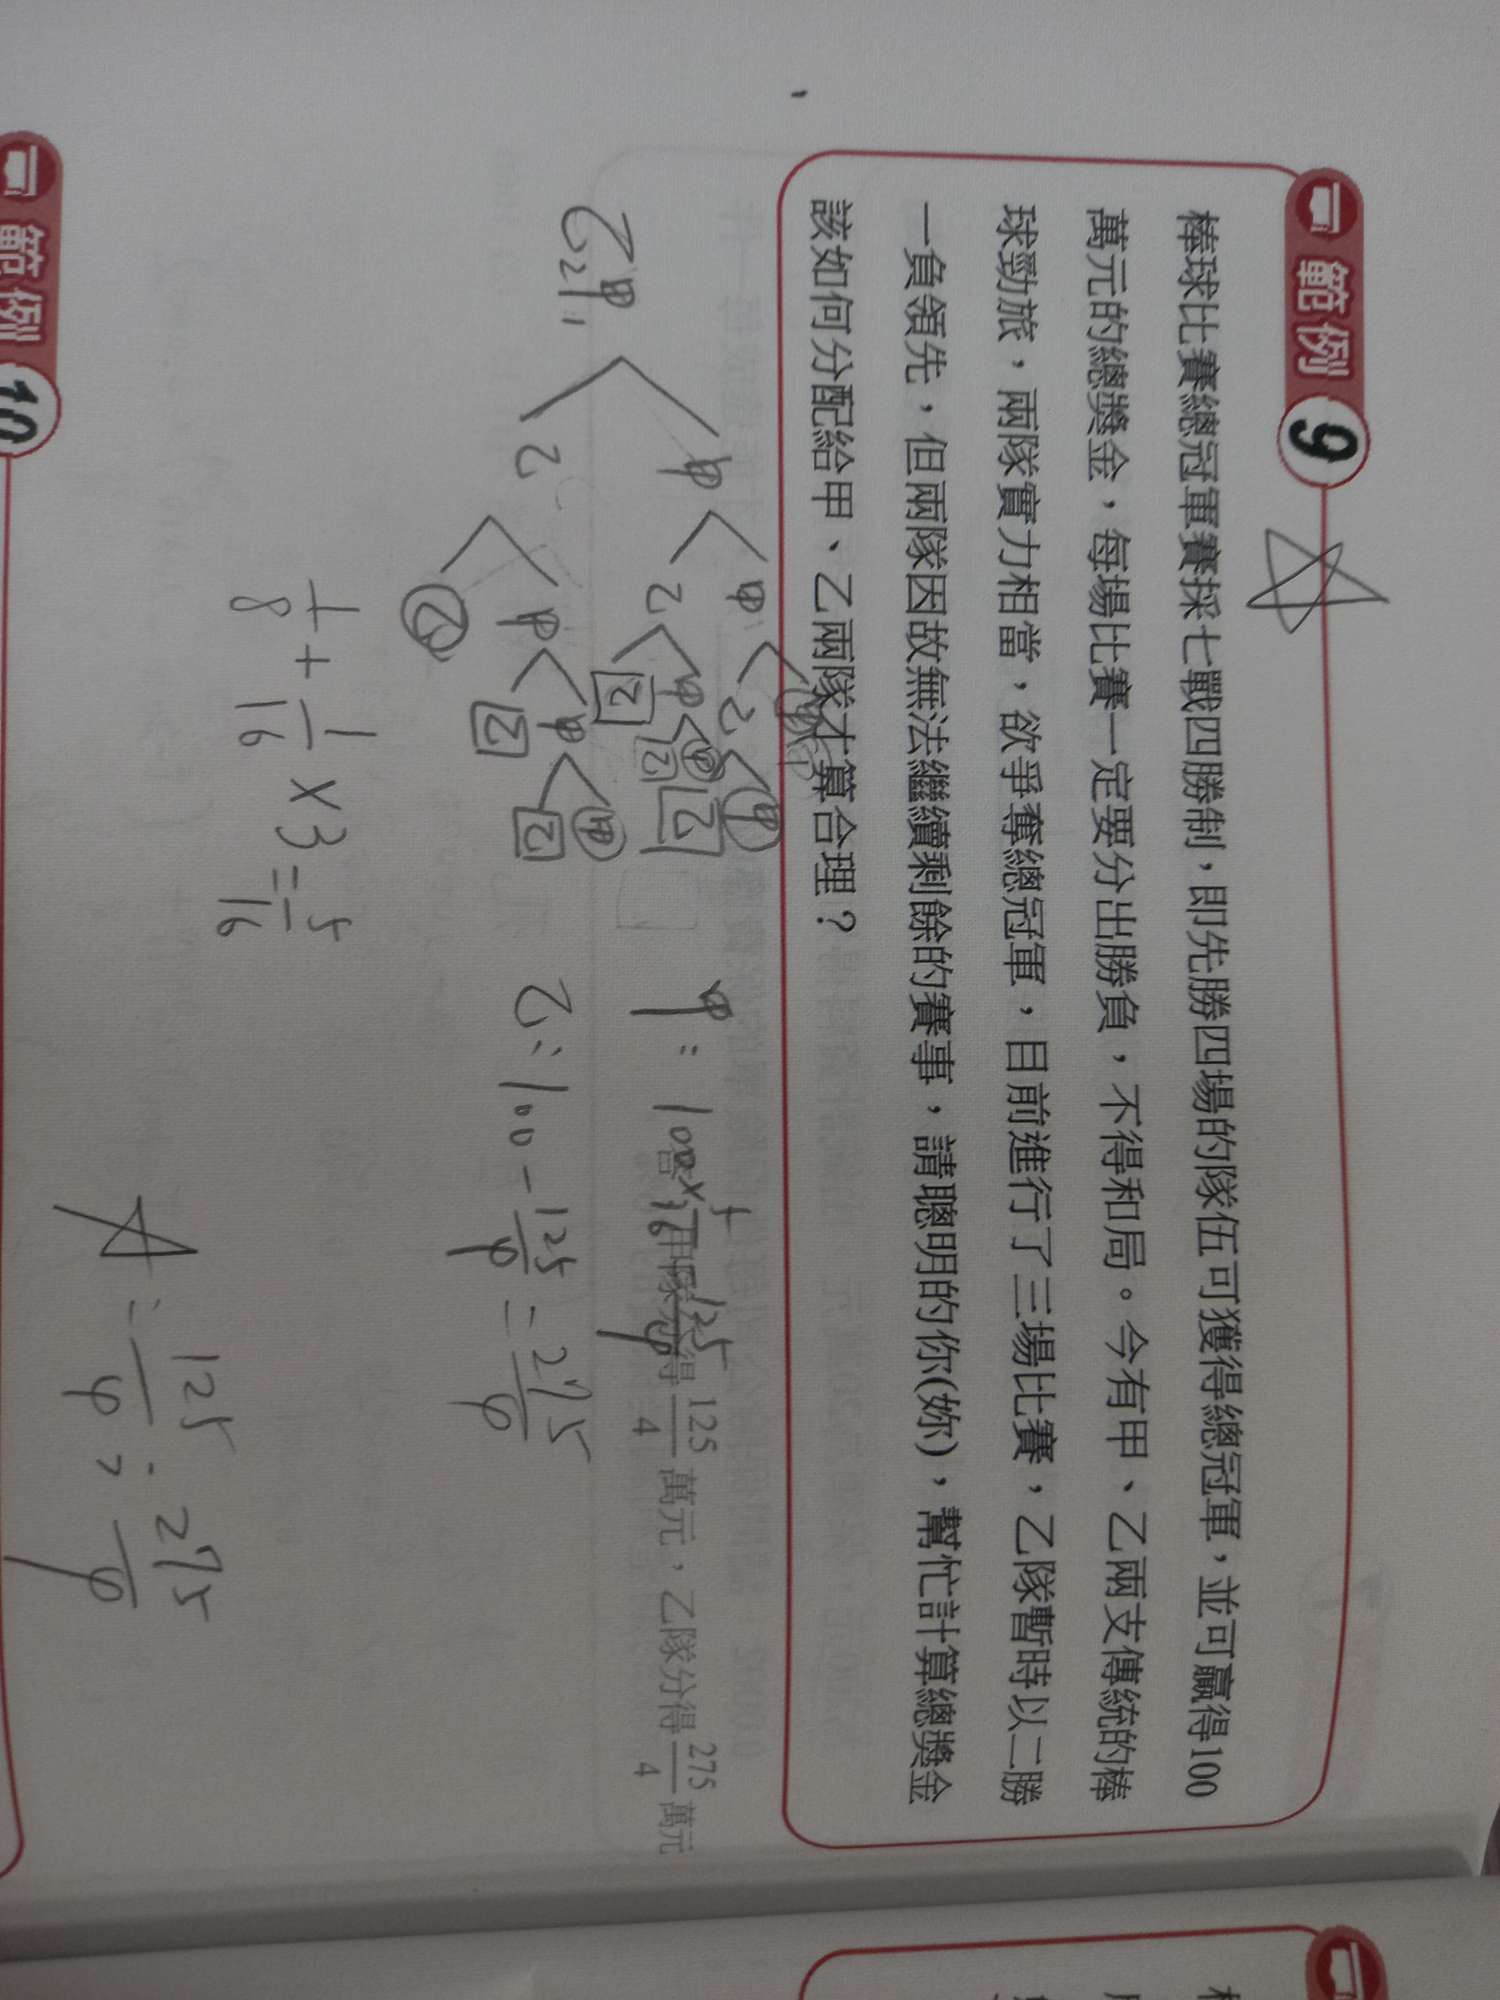 範例 9
棒球比賽總冠軍賽採七戰四勝制，即先勝四場的隊伍可獲得總冠軍，並可贏得100
萬元的總獎金，每場比賽一定要分出勝負，不得和局。今有甲、乙兩支傳統的棒
球勁旅，兩隊實力相當，欲爭奪總冠軍，目前進行了三場比賽，乙隊暫時以二勝
一負領先，但兩隊因故無法繼續剩餘的賽事，請聰明的你(妳)，幫忙計算總獎金
該如何分配給甲、乙兩隊才算合理？
甲隊分得 125/4 萬元，乙隊分得 275/4 萬元
乙 甲
2 1
甲 = 100 × 5/16 125/4
乙: 100 - 125/4 = 275/4
1/8 + 1/16 × 3 = 5/16
A: 125/4, 275/4
範例 10